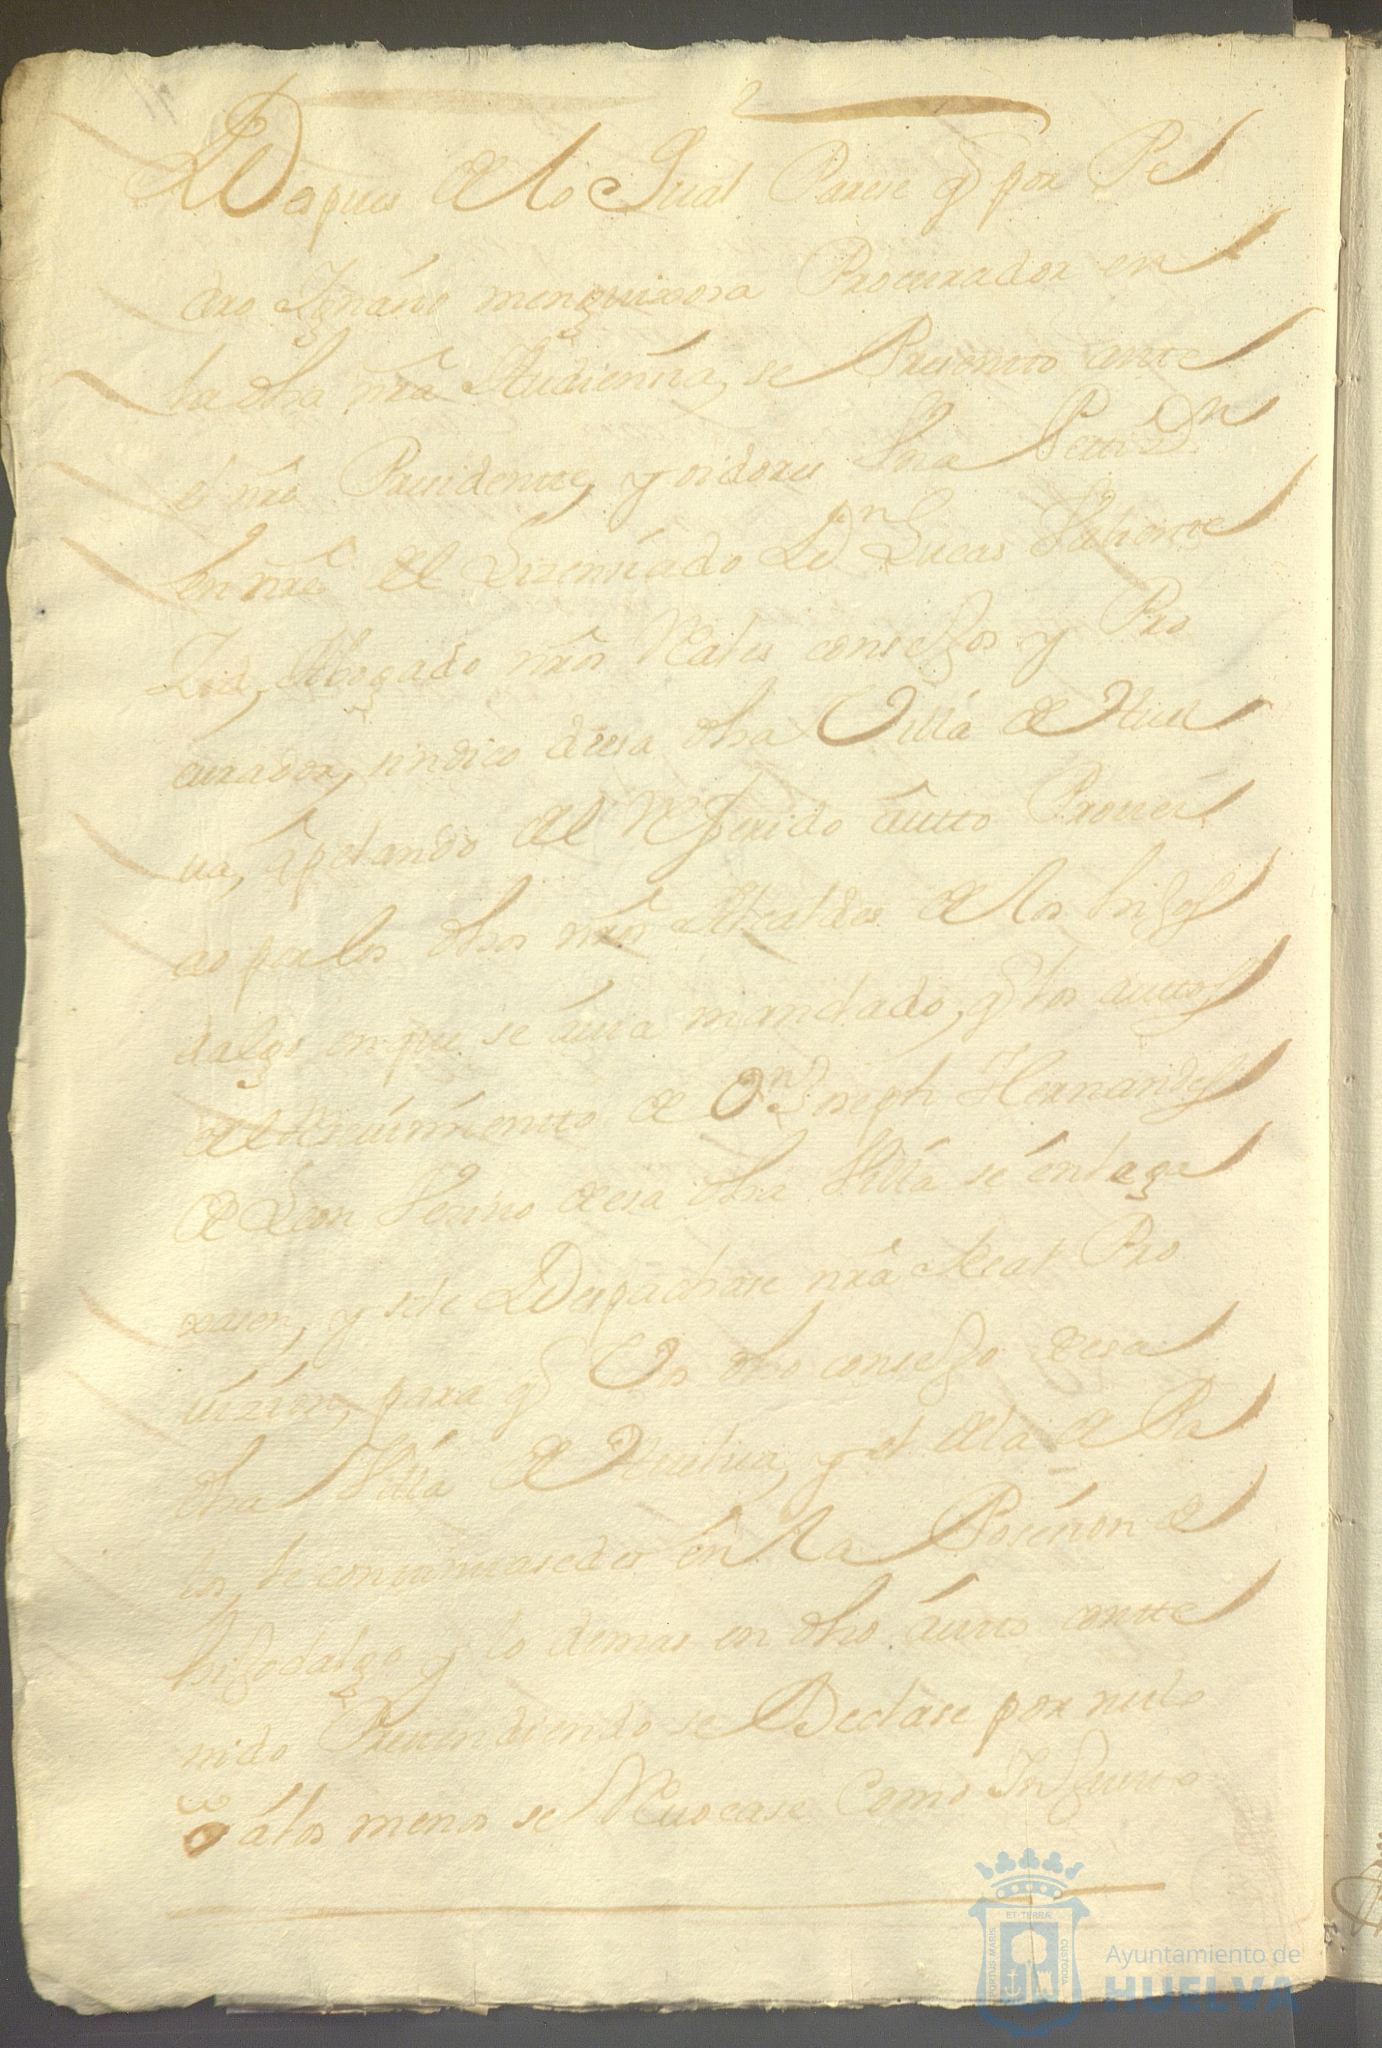 2
Despues de lo Qual Parese q̃ por Pe
dro Ignáno menguixora Procurador en
la dha nrã Audiencia, se Presento ante
el nrõ Presidentte, y oidores Una Pettiz.on
en nrẽ del Lizenciado D.n Lucas
Abogado nrõs Reales consejos y Pro
curador, sindico desa dha Villa de Huel
ua, apelando del Referido áutto Proueí
do por los dhos nrõs Alcaldes de los hijos
dalgo en que se áuia mandado, q̃ los auttos
de Reciuimientto de D.n Joseph Hernandes
de Leon Vezino desa dha Villa sé entrega
xasen, y sele Despachase nrã Real Pro
uizion, para q̃ Vos dho consejo desa
dha Villa de Huelua, y el de la de Pa
los, le continuasedes en la Posécion de
hijodalgo y lo demas en dho áutto contte
nido Pretendiendo se Declase por nulo
o álos menos se Reuocase Como Injusto
Ayuntamiento de
HUELVA
ET TERRAE
CUSTODIA
PORTUS MARIS